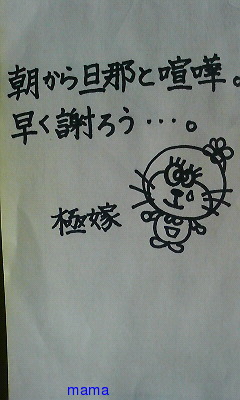 朝から旦那と喧嘩。
早く謝ろう…。
極嫁
mama